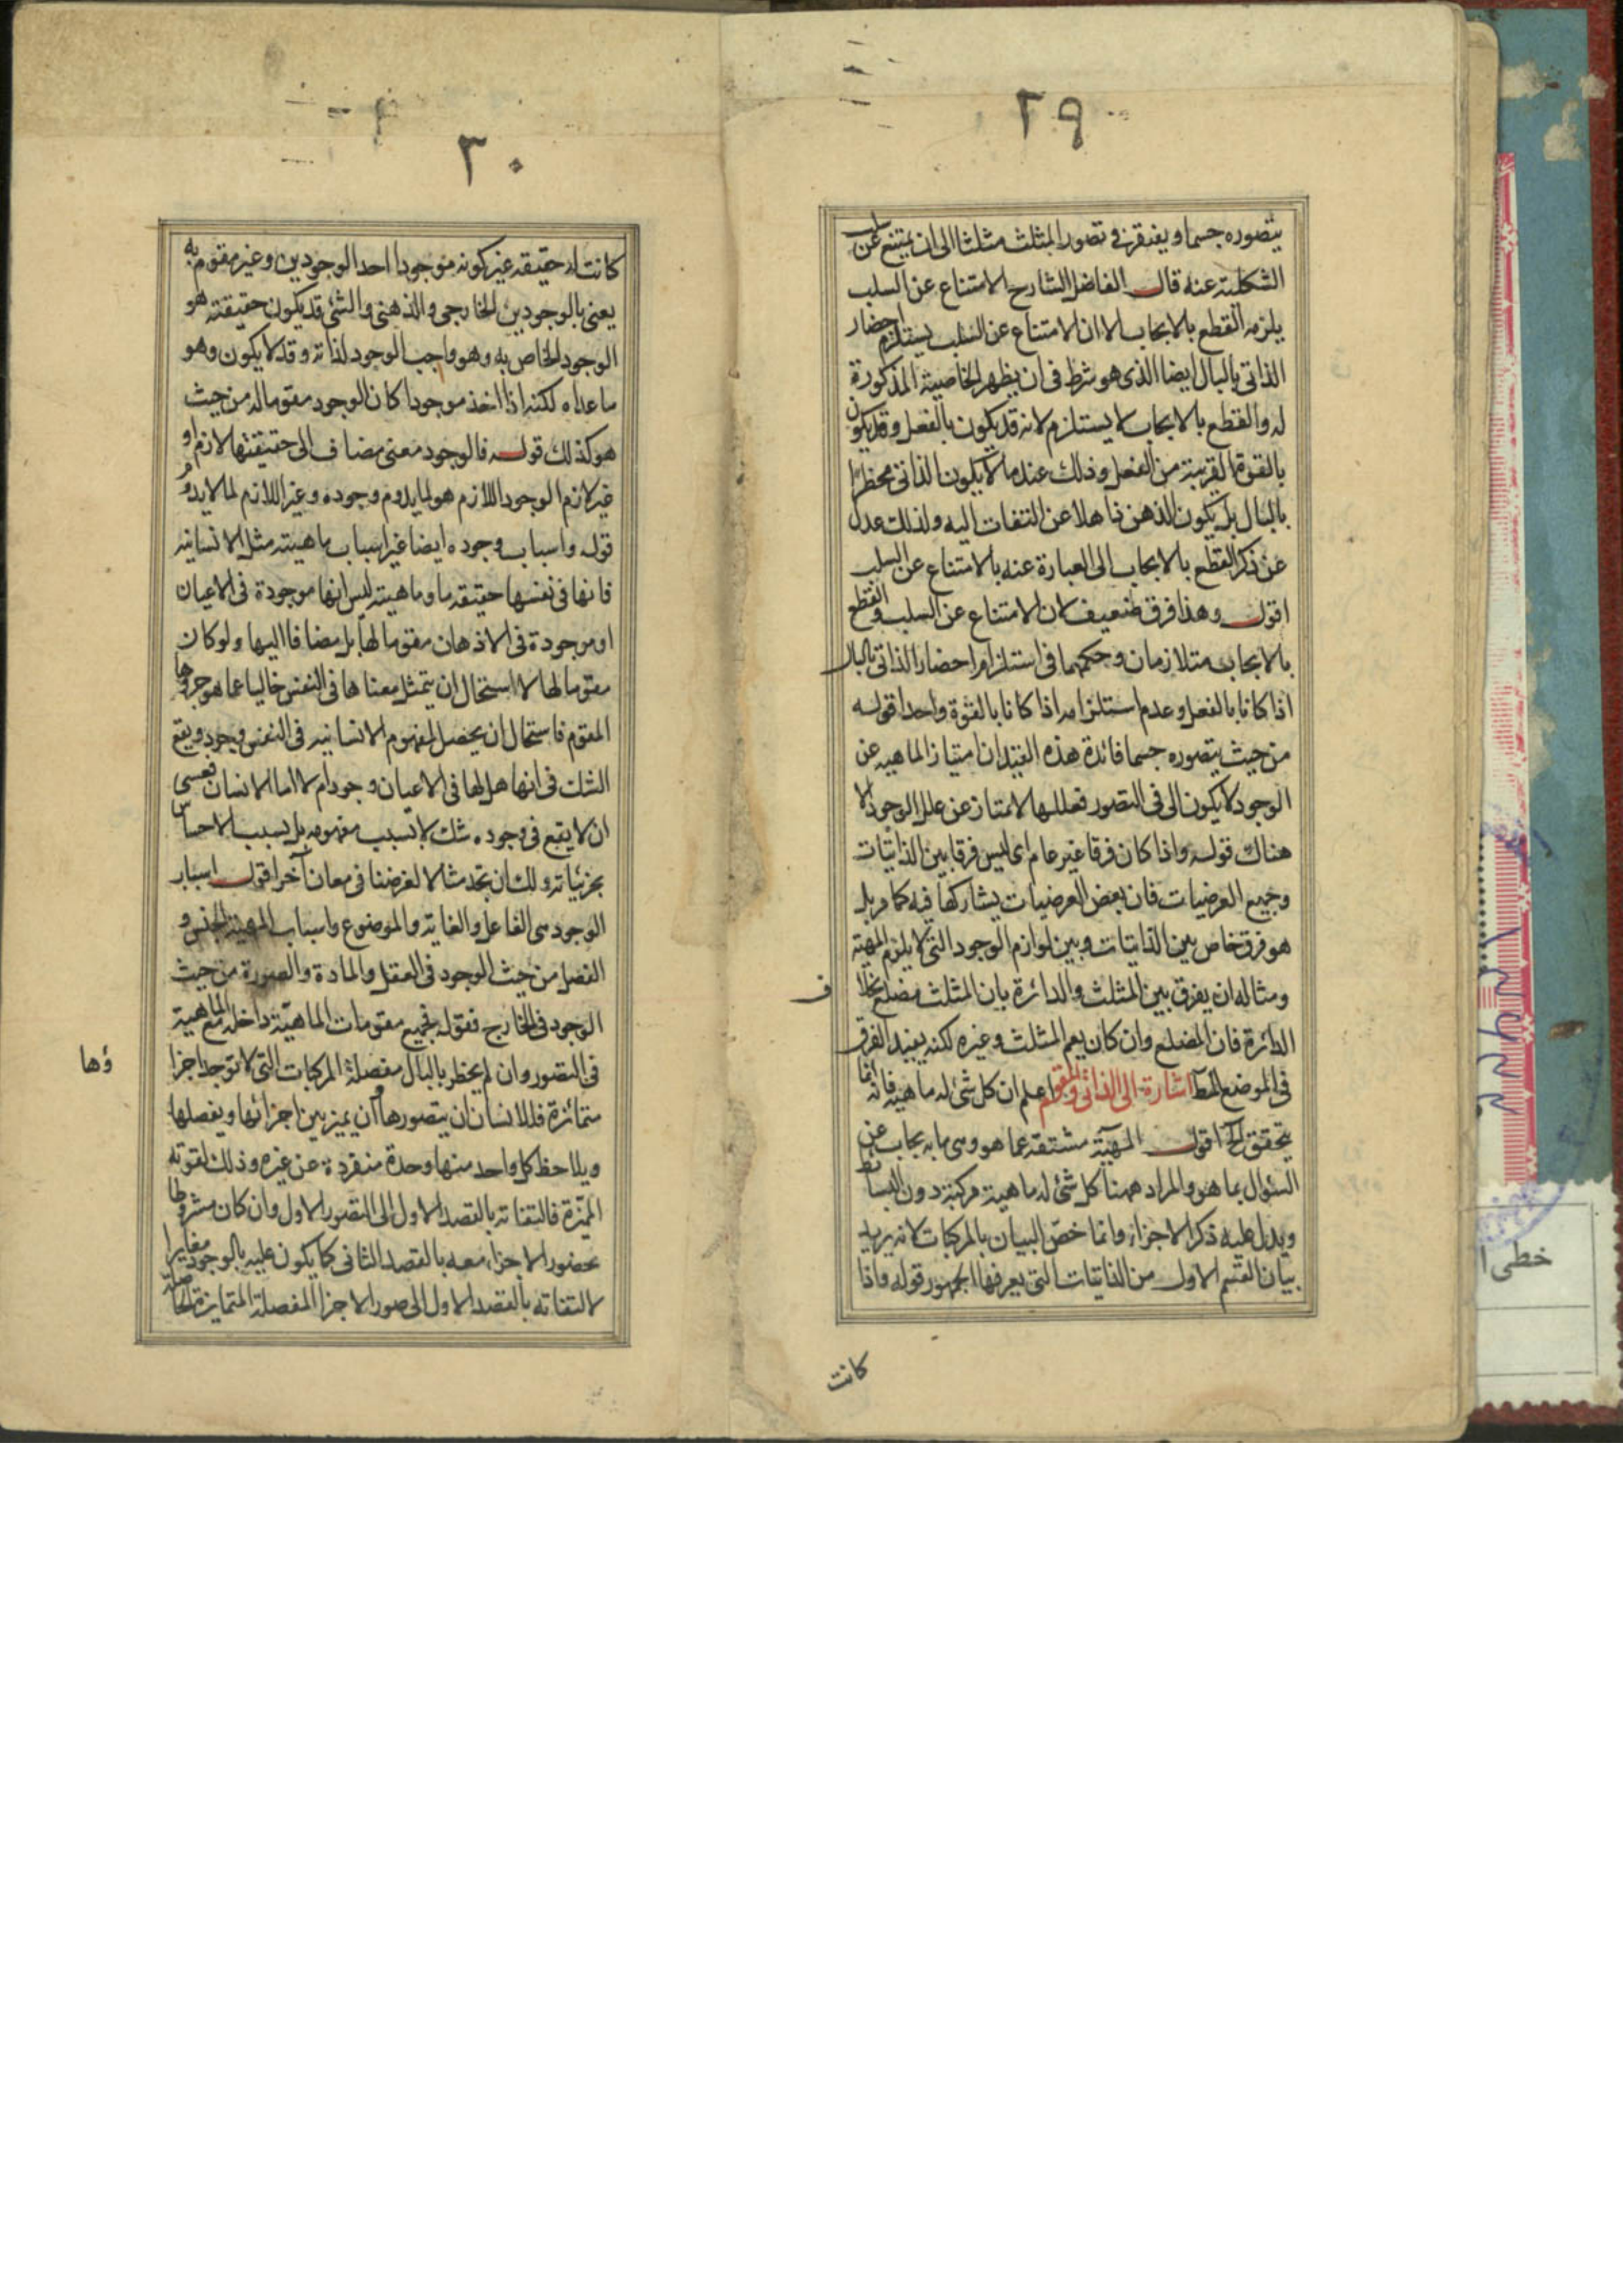 ٢٩
يتصوره جسما ويفتقر في تصور المثلث مثلثا الى ان يمتنع عن سلب
الشكلية عنه قال الفاضل الشارح الامتناع عن السلب
يلزمه القطع بالايجاب الا ان الامتناع عن السلب يستلزم احضار
الذاتى بالبال ايضا الذى هو شرط فى ان يظهر الخاصية المذكورة
له والقطع بالايجاب لا يستلزم لانه قد يكون بالفعل وقد يكون
بالقوة القريبة من الفعل وذلك عند ما لا يكون الذاتى مخطرا
بالبال بل يكون الذهن ذاهلا عن التفات اليه ولذلك عدل
عن ذكر القطع بالايجاب الى العبارة عنه بالامتناع عن السلب
اقول وهذا فرق ضعيف لان الامتناع عن السلب والقطع
بالايجاب متلازمان وحكمهما فى استلزام احضار الذاتى بالبال
اذا كانا بالفعل وعدم استلزامه اذا كانا بالقوة واحد قوله
من حيث يتصوره جسما فائدة هذه القيد ان امتياز الماهيه عن
الوجود لا يكون الى فى التصور فعللها لا تمتاز عن علل الوجود الا
هناك قوله واذا كان فرقا غير عام اى ليس فرقا بين الذاتيات
وجميع العرضيات فان بعض العرضيات يشاركها فيه كما مر بل
هو فرق خاص بين الذاتيات وبين لوازم الوجود التى لا يلزم المهية
ومثاله ان يفرق بين المثلث والدائرة بان المثلث مضلع بخلا
ف
الدائرة فان المضلع وان كان يعم المثلث وغيره لكنه يفيد الفرق
فى الموضع المط اشارة الى الذاتى المقوم اعلم ان كل شئ له ماهيه فانه انما
يتحقق الخ اقول المهية مشتقه عما هو وهى ما به يجاب عن
السئوال بما هو والمراد ههنا كل شئ له ماهية مركبة دون البسائط
ويدل عليه ذكر الاجزاء وانما خص البيان بالمركبات لانه يريد
بيان القسم الاول من الذاتيات التى يعرفها الجمهور قوله واذا
كانت
٣٠
كانت له حقيقه غير كونه موجودا احد الوجودين وغير مقوم به
يعنى بالوجودين الخارجى والذهنى والشئ قد يكون حقيقته هو
الوجود الخاص به وهو واجب الوجود لذاته وقد لا يكون وهو
ما عداه لكنه اذا اخذ موجودا كان الوجود مقوما له من حيث
هو كذلك قوله فالوجود معنى مضاف الى حقيقتها لازم او
غير لازم الوجود اللازم هو لما يدوم وجوده وغير اللازم لما لا يدوم
قوله واسباب وجوده ايضا غير اسباب ماهيته مثل الانسانيه
فانها فى نفسها حقيقه ما وماهيته ليس انها موجودة فى الاعيان
او موجودة فى الاذهان مقوما لها بل مضافا اليها ولو كان
مقوما لها لاستحال ان يتمثل معناها فى النفس خاليا عما هو جزؤها
المقوم فاستحال ان يحصل لمفهوم الانسانيه فى النفس وجود ويقع
الشك فى انها هل لها فى الاعيان وجود ام لا اما الانسان فعسى
ان لا يقع فى وجوده شك لا بسبب مفهومه بل بسبب الاحساس
بجزئياته ولك ان تجد مثالا لغرضنا فى معان آخر اقول اسباب
الوجود هى الفاعل والغايه والموضوع واسباب المهية الجنس و
الفصل من حيث الوجود فى العقل والمادة والصورة من حيث
الوجود فى الخارج فقوله فجميع مقومات الماهيّة داخله مع الماهية
فى التصور وان لم يخطر بالبال مفصلة المركبات التى لا توجد اجزا
ؤها
متمائزة فللانسان ان يتصورها وان يميز بين اجزائها ويفصلها
ويلاحظ كل واحد منها وحدة منفردة عن غيره وذلك لقوته
المميزة فالتفاته بالقصد الاول الى التصور الاول وان كان مشروطا
بحضور الاجزاء معه بالقصد الثانى كما يكون عليه بالوجود مغايرا
لالتفاته بالقصد الاول الى صور الاجزا المفصلة المتمايزة الحاصلة
خطى